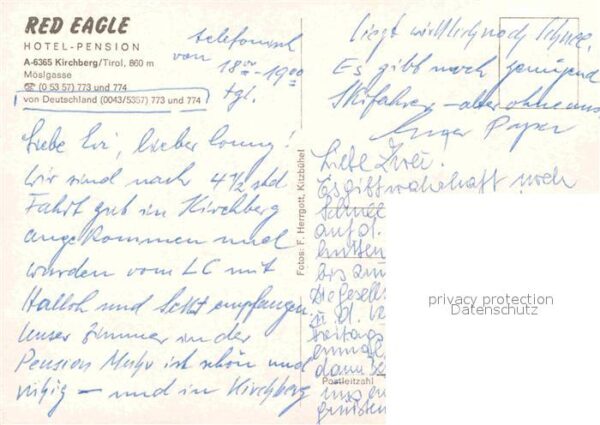 RED EAGLE
HOTEL-PENSION
A-6365 Kirchberg/Tirol, 860 m
Möslgasse
☎ (0 53 57) 773 und 774
von Deutschland (0043/5357) 773 und 774
telefonisch
von 18⁰⁰-19⁰⁰
tgl.
Liebe Evi, lieber Conny!
Wir sind nach 4 1/2 std
Fahrt gut in Kirchberg
angekommen und
wurden vom LC mit
Halloh und Sekt empfangen
Unser Zimmer in der
Pension ist schön und
ruhig – und in Kirchberg
liegt wirklich noch Schnee.
Es gibt noch genügend
Skifahrer – aber ohne uns
Euger Papa
Fotos: F. Herrgott, Kitzbühel
Liebe Zwei.
Es gibt wahrhaft noch
Schnee
auf d.
hütten
bis zum
Die Gesell
u. d.
Freitag
einmal
dann
Postleitzahl
uns
genießen
privacy protection
Datenschutz